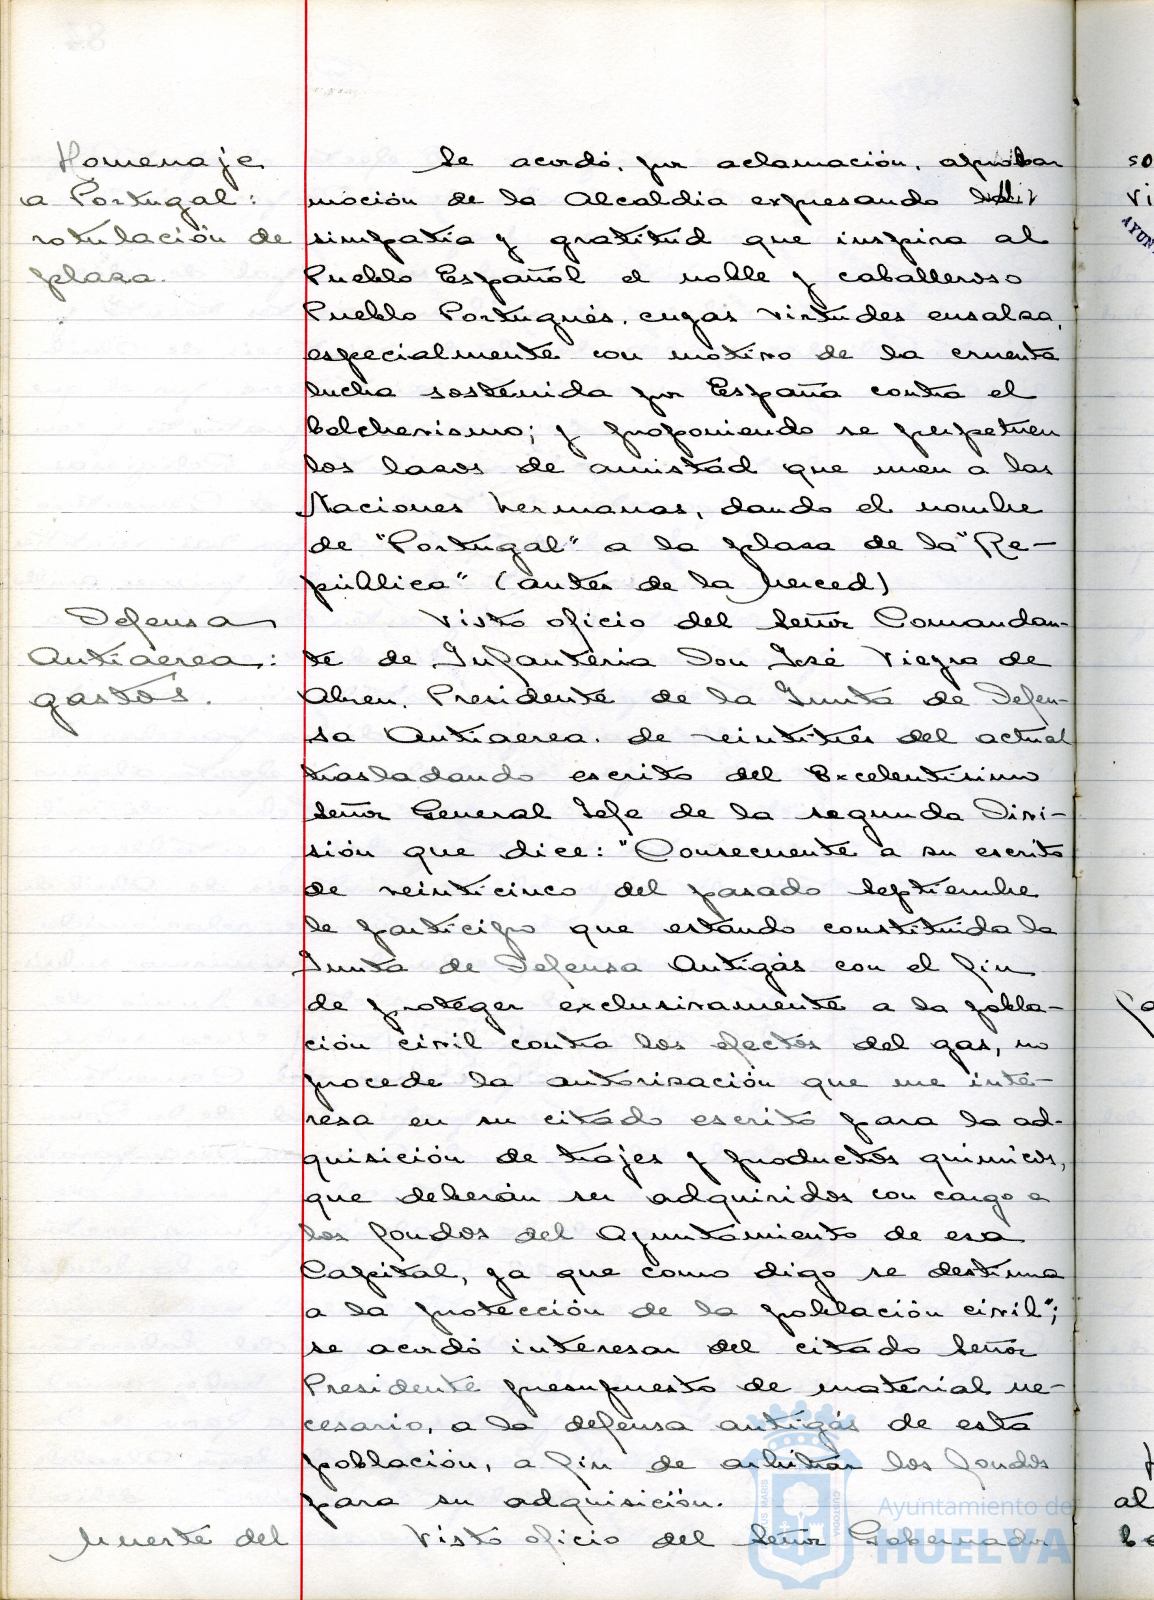 Homenaje
a Portugal:
rotulación de
plaza.
Se acordó, por aclamación, aprobar
moción de la Alcaldia expresando la
simpatía y gratitud que inspira al
Pueblo Español el noble y caballeroso
Pueblo Portugués, cuyas virtudes ensalza,
especialmente con motivo de la cruenta
lucha sostenida por España contra el
bolchevismo; y proponiendo se perpetuen
los lazos de amistad que unen a las
Naciones hermanas, dando el nombre
de "Portugal" a la plaza de la "Re-
pública" (antes de la Merced)
Defensa
Antiaerea:
gastos.
Visto oficio del Señor Comandan-
te de Infanteria Don José Viegra de
Abreu, Presidente de la Junta de Defen-
sa Antiaerea, de veintitrés del actual
trasladando escrito del Excelentisimo
Señor General Jefe de la segunda Divi-
sión que dice: "Consecuente a su escrito
de veinticinco del pasado Septiembre
le participo que estando constituida la
Junta de Defensa Antigás con el fin
de proteger exclusivamente a la pobla-
ción civil contra los efectos del gas, no
procede la autorización que me inte-
resa en su citado escrito para la ad-
quisición de trajes y productos quimicos,
que deberán ser adquiridos con cargo a
los fondos del Ayuntamiento de esa
Capital, ya que como digo se destina
a la protección de la población civil";
se acordó interesar del citado Señor
Presidente presupuesto de material ne-
cesario, a la defensa antigás de esta
población, a fin de arbitrar los fondos
para su adquisición.
Muerte del
Visto oficio del Señor Gobernador
Ayuntamiento de
HUELVA